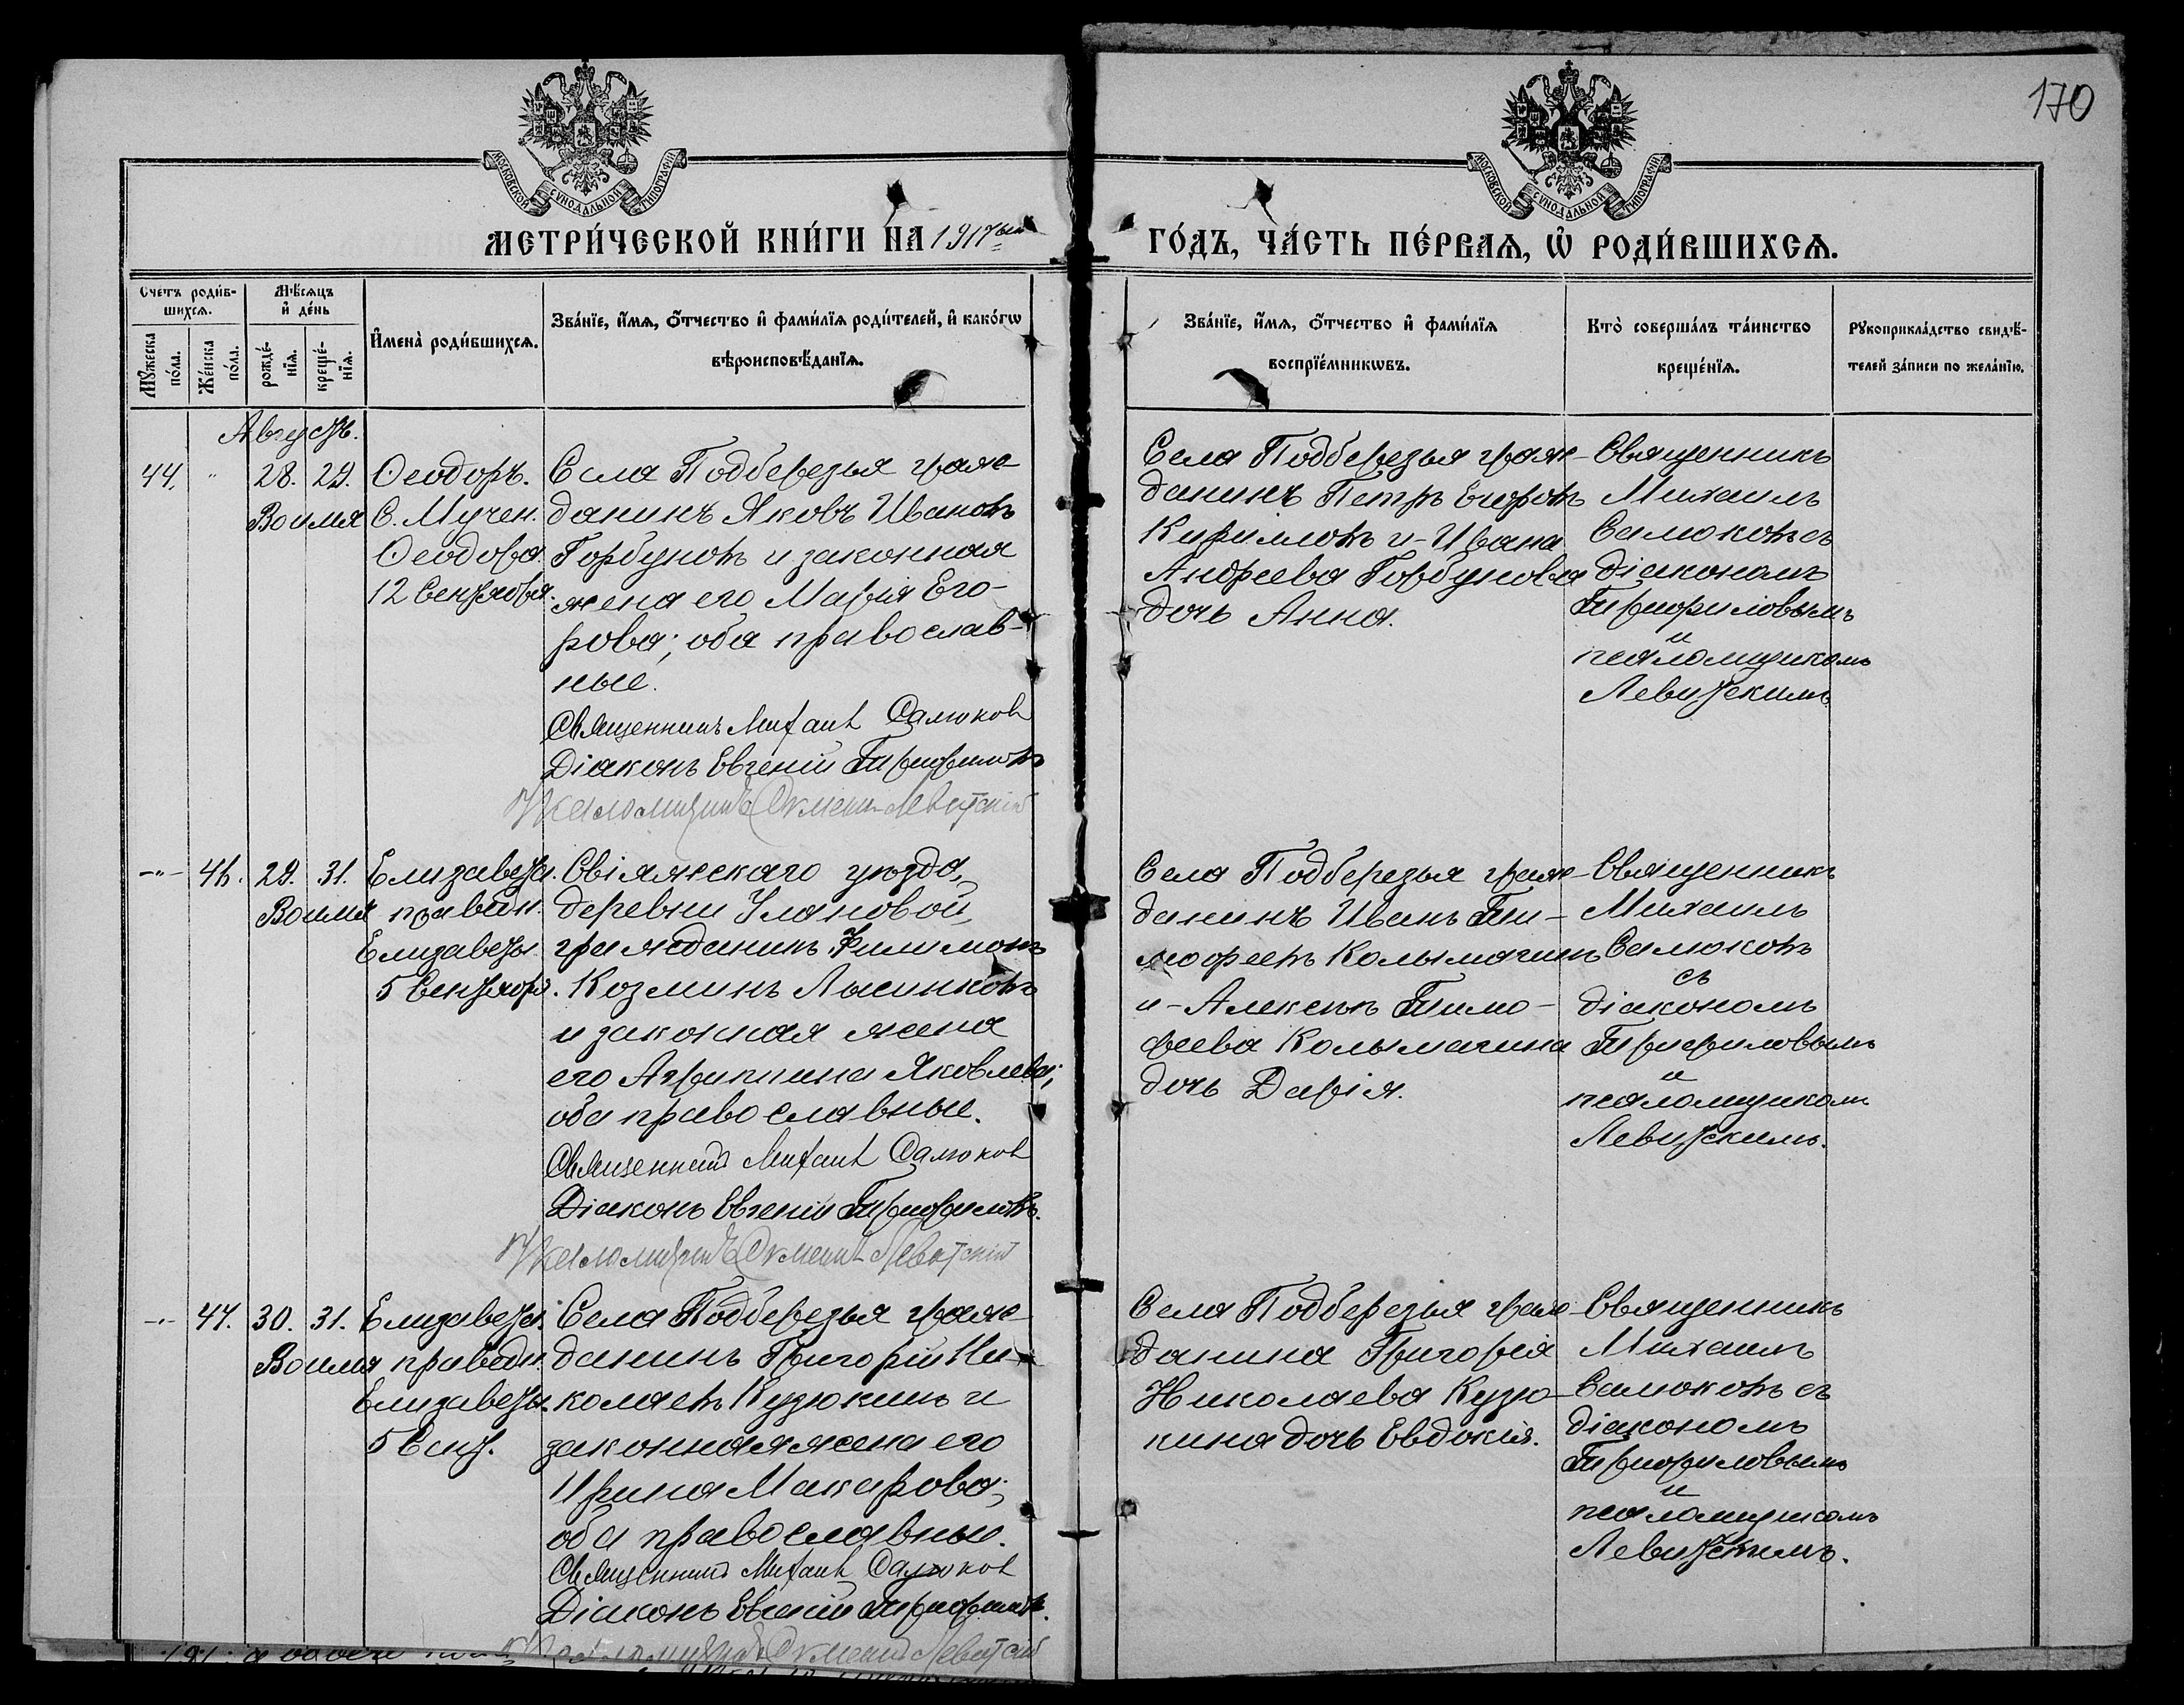 170
МОСКОВСКОЙ СѴНОДАЛЬНОЙ ТИПОГРАФІИ
МОСКОВСКОЙ СѴНОДАЛЬНОЙ ТИПОГРАФІИ
МЕТРИ́ЧЕСКОЙ КНИ́ГИ НА 1917ый ГО́ДЪ, ЧА́СТЬ ПЕ́РВАѦ, Ѡ РОДИ́ВШИХСѦ.
Счетъ роди́вшихсѧ.
Мѣсѧцъ и де́нь
Мꙋ́жеска по́ла.
Же́нска по́ла.
рожде́нїѧ.
креще́нїѧ.
Имена̀ роди́вшихсѧ.
Зва́нїе, и́мѧ, о́тчество и фами́лїѧ роди́телей, и како́гѡ
вѣроисповѣ́данїѧ.
Зва́нїе, и́мѧ, о́тчество и фами́лїѧ
воспрїе́мникѡвъ.
Кто̀ соверша́лъ та́инство
креще́нїѧ.
Рꙋкоприкла́дство свидѣ́-
телей за́писи по жела́нїю.
Августъ.
44. " 28. 29.
Во имя
Ѳеодоръ.
С. Мучен.
Ѳеодора
12 Сентября.
Села Подберезья граж-
данинъ Яковъ Ивановъ
Горбуновъ и законная
жена его Марія Его-
рова; оба православ-
ные.
Священникъ Михаил Самоков
Діаконъ Евгеній Трифиловъ
Псаломщикъ Левитскій
Села Подберезья граж-
данинъ Петръ Егоровъ
Кирилловъ и Ивана
Андреева Горбунова
дочь Анна.
Священникъ
Михаилъ
Самоковъ съ
діакономъ
Трифиловымъ
и
псаломщикомъ
Левитскимъ
-"- 46. 29. 31.
Во имя
Елизавета.
правед.
Елизаветы
5 Сентября.
Свіяжскаго уѣзда,
деревни Улановой,
гражданинъ Филимонъ
Козминъ
и законная жена
его Агриппина Яковлева;
оба православные.
Священникъ Михаил Самоков
Діаконъ Евгеній Трифиловъ.
Псаломщикъ Левитскій
Села Подберезья граж-
данинъ Иванъ Ти-
мофеевъ Колымагинъ
и Алексѣя Тимо-
феева Колымагина
дочь Дарія.
Священникъ
Михаилъ
Самоковъ
съ
діакономъ
Трифиловымъ
и
псаломщикомъ
Левитскимъ.
-"- 47. 30. 31.
Во имя
Елизавета.
праведн.
Елизаветы.
5 Сент.
Села Подберезья граж-
данинъ Григорій Ни-
колаевъ Кузюкинъ и
законная жена его
Ирина Макарова;
оба православные.
Священникъ Михаил Самоков
Діаконъ Евгеній Трифиловъ.
Псаломщикъ Левитскій
Села Подберезья граж-
данина Григорія
Николаева Кузю-
кина дочь Евдокія.
Священникъ
Михаилъ
Самоковъ съ
діакономъ
Трифиловымъ
и
псаломщикомъ
Левитскимъ.